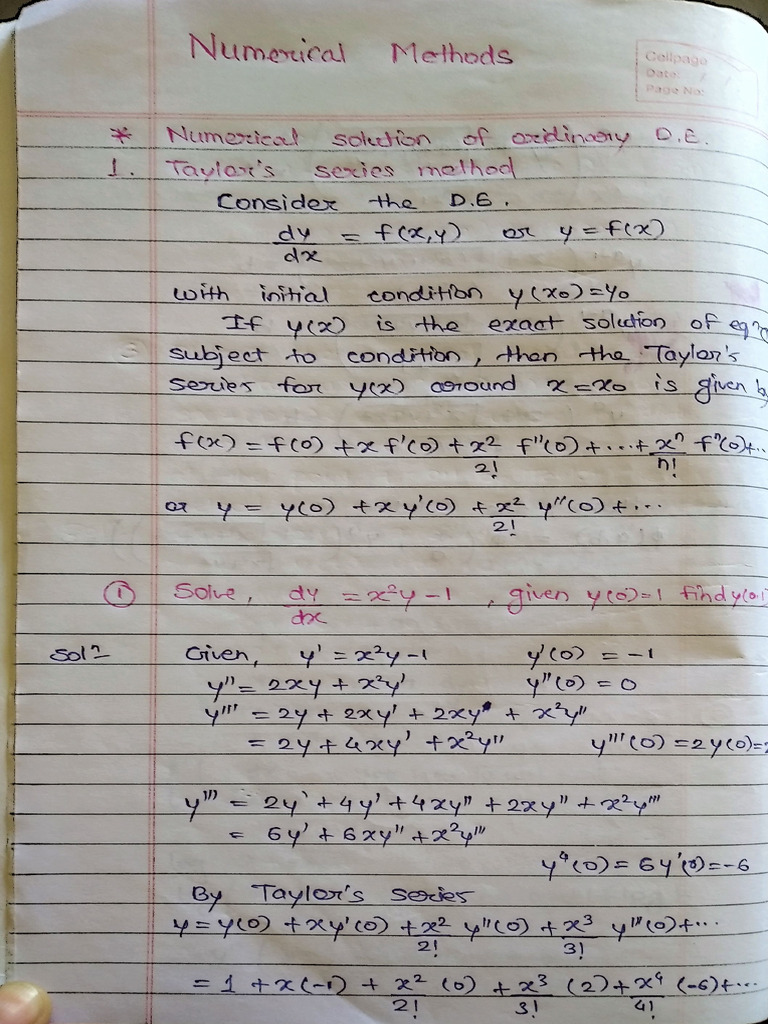 Numerical Methods
Cellpage
Date: /
Page No:
* Numerical solution of oridinary D.E.
1. Taylor's series method
Consider the D.E.
dy/dx = f(x,y) or y = f(x)
with initial condition y(x₀)=y₀
If y(x) is the exact solution of eqⁿ
subject to condition, then the Taylor's
series for y(x) around x=x₀ is given b
f(x) = f(0) + x f'(0) + x²/2! f''(0) + ... + xⁿ/n! fⁿ(0)+..
or y = y(0) + x y'(0) + x²/2! y''(0) + ...
① Solve, dy/dx = x²y-1, given y(0)=1 find y(0.1)
Solⁿ Given, y' = x²y-1 y'(0) = -1
y'' = 2xy + x²y' y''(0) = 0
y''' = 2y + 2xy' + 2xy' + x²y''
= 2y + 4xy' + x²y'' y'''(0) = 2y(0)=2
y'''' = 2y' + 4y' + 4xy'' + 2xy'' + x²y'''
= 6y' + 6xy'' + x²y'''
y⁴(0) = 6y'(0) = -6
By Taylor's series
y = y(0) + xy'(0) + x²/2! y''(0) + x³/3! y'''(0) + ...
= 1 + x(-1) + x²/2! (0) + x³/3! (2) + x⁴/4! (-6) + ...